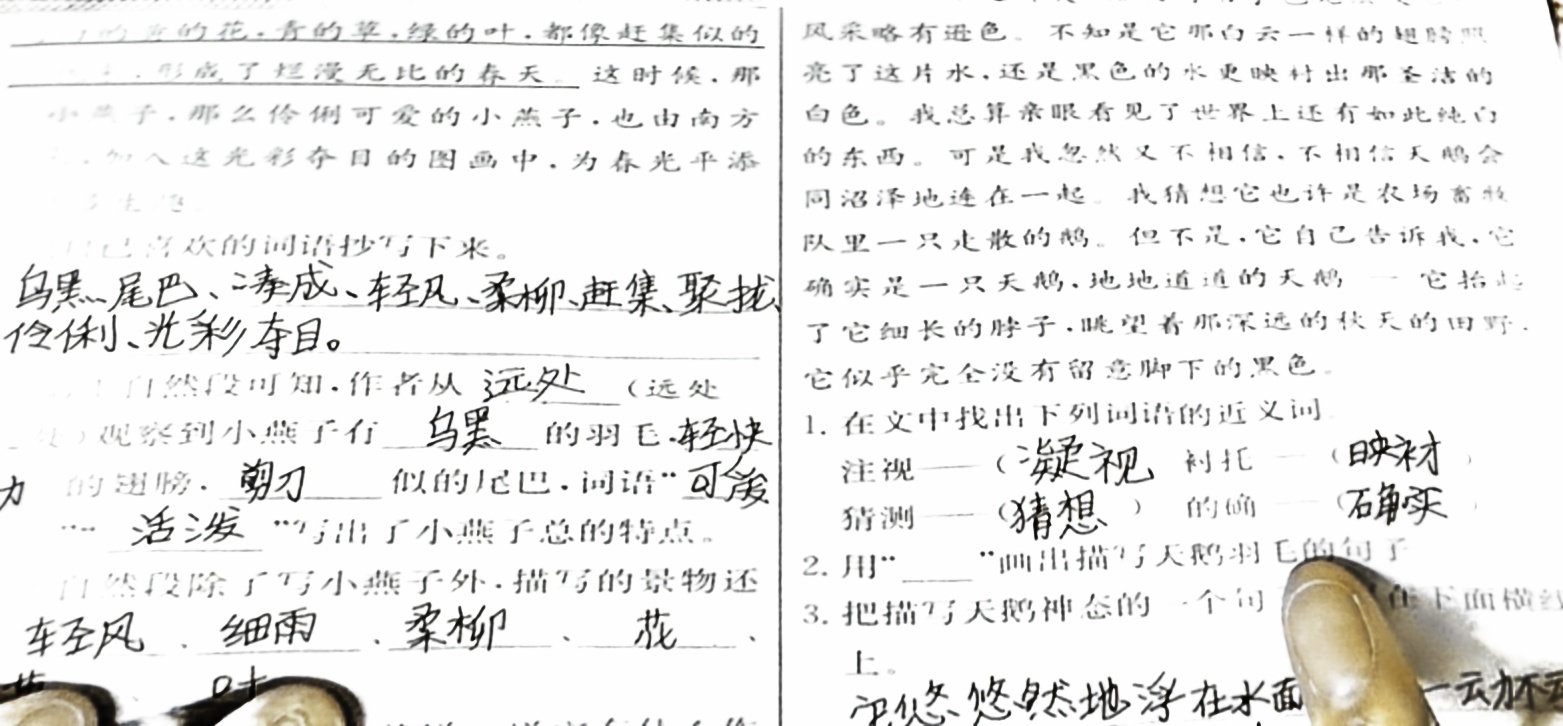 的花,青的草,绿的叶,都像赶集似的
形成了烂漫无比的春天。这时候,那
小燕子,那么伶俐可爱的小燕子,也由南方
加入这光彩夺目的图画中,为春光平添
自己喜欢的词语抄写下来。
乌黑、尾巴、凑成、轻风、柔柳、赶集、聚拢、
伶俐、光彩夺目。
自然段可知,作者从 远处 (远处
处)观察到小燕子有 乌黑 的羽毛,轻快
的翅膀, 剪刀 似的尾巴,词语“可爱
”“ 活泼 ”写出了小燕子总的特点。
自然段除了写小燕子外,描写的景物还
轻风 、 细雨 、 柔柳 、 花 、
叶
风采略有逊色。不知是它那白云一样的翅膀照
亮了这片水,还是黑色的水更映衬出那圣洁的
白色。我总算亲眼看见了世界上还有如此纯白
的东西。可是我忽然又不相信,不相信天鹅会
同沼泽地连在一起。我猜想它也许是农场畜牧
队里一只走散的鹅。但不是,它自己告诉我,它
确实是一只天鹅,地地道道的天鹅——它抬起
了它细长的脖子,眺望着那深远的秋天的田野,
它似乎完全没有留意脚下的黑色。
1. 在文中找出下列词语的近义词
注视——(凝视 衬托——(映衬)
猜测——(猜想) 的确——(确实)
2. 用“____”画出描写天鹅羽毛的句子
3. 把描写天鹅神态的一个句 在下面横线
上。
悠悠然地浮在水面